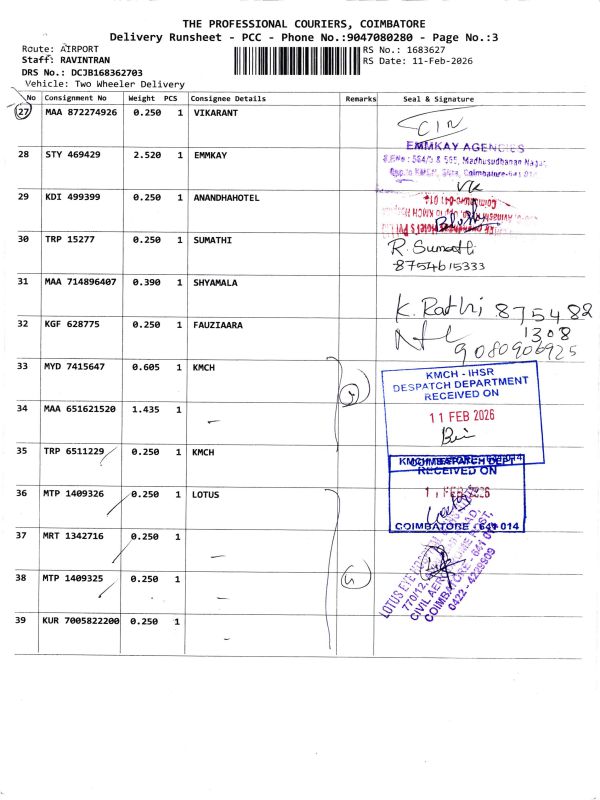 THE PROFESSIONAL COURIERS, COIMBATORE
Delivery Runsheet - PCC - Phone No.:9047080280 - Page No.:3
Route: AIRPORT
RS No.: 1683627
Staff: RAVINTRAN
RS Date: 11-Feb-2026
DRS No.: DCJB168362703
Vehicle: Two Wheeler Delivery
No Consignment No Weight PCS Consignee Details Remarks Seal & Signature
27 MAA 872274926 0.250 1 VIKARANT
28 STY 469429 2.520 1 EMMKAY
EMMKAY AGENCIES
Madhusudhanan Nagar,
29 KDI 499399 0.250 1 ANANDHAHOTEL
30 TRP 15277 0.250 1 SUMATHI
R. Sumathi
8754615333
31 MAA 714896407 0.390 1 SHYAMALA
K. Rathi 875482
1308
32 KGF 628775 0.250 1 FAUZIAARA
9080906925
33 MYD 7415647 0.605 1 KMCH
KMCH - IHSR
DESPATCH DEPARTMENT
RECEIVED ON
11 FEB 2026
34 MAA 651621520 1.435 1
35 TRP 6511229 0.250 1 KMCH
RECEIVED ON
36 MTP 1409326 0.250 1 LOTUS
COIMBATORE - 641 014
37 MRT 1342716 0.250 1
38 MTP 1409325 0.250 1
39 KUR 7005822200 0.250 1
COIMBATORE - 641 014
0422 - 4229909